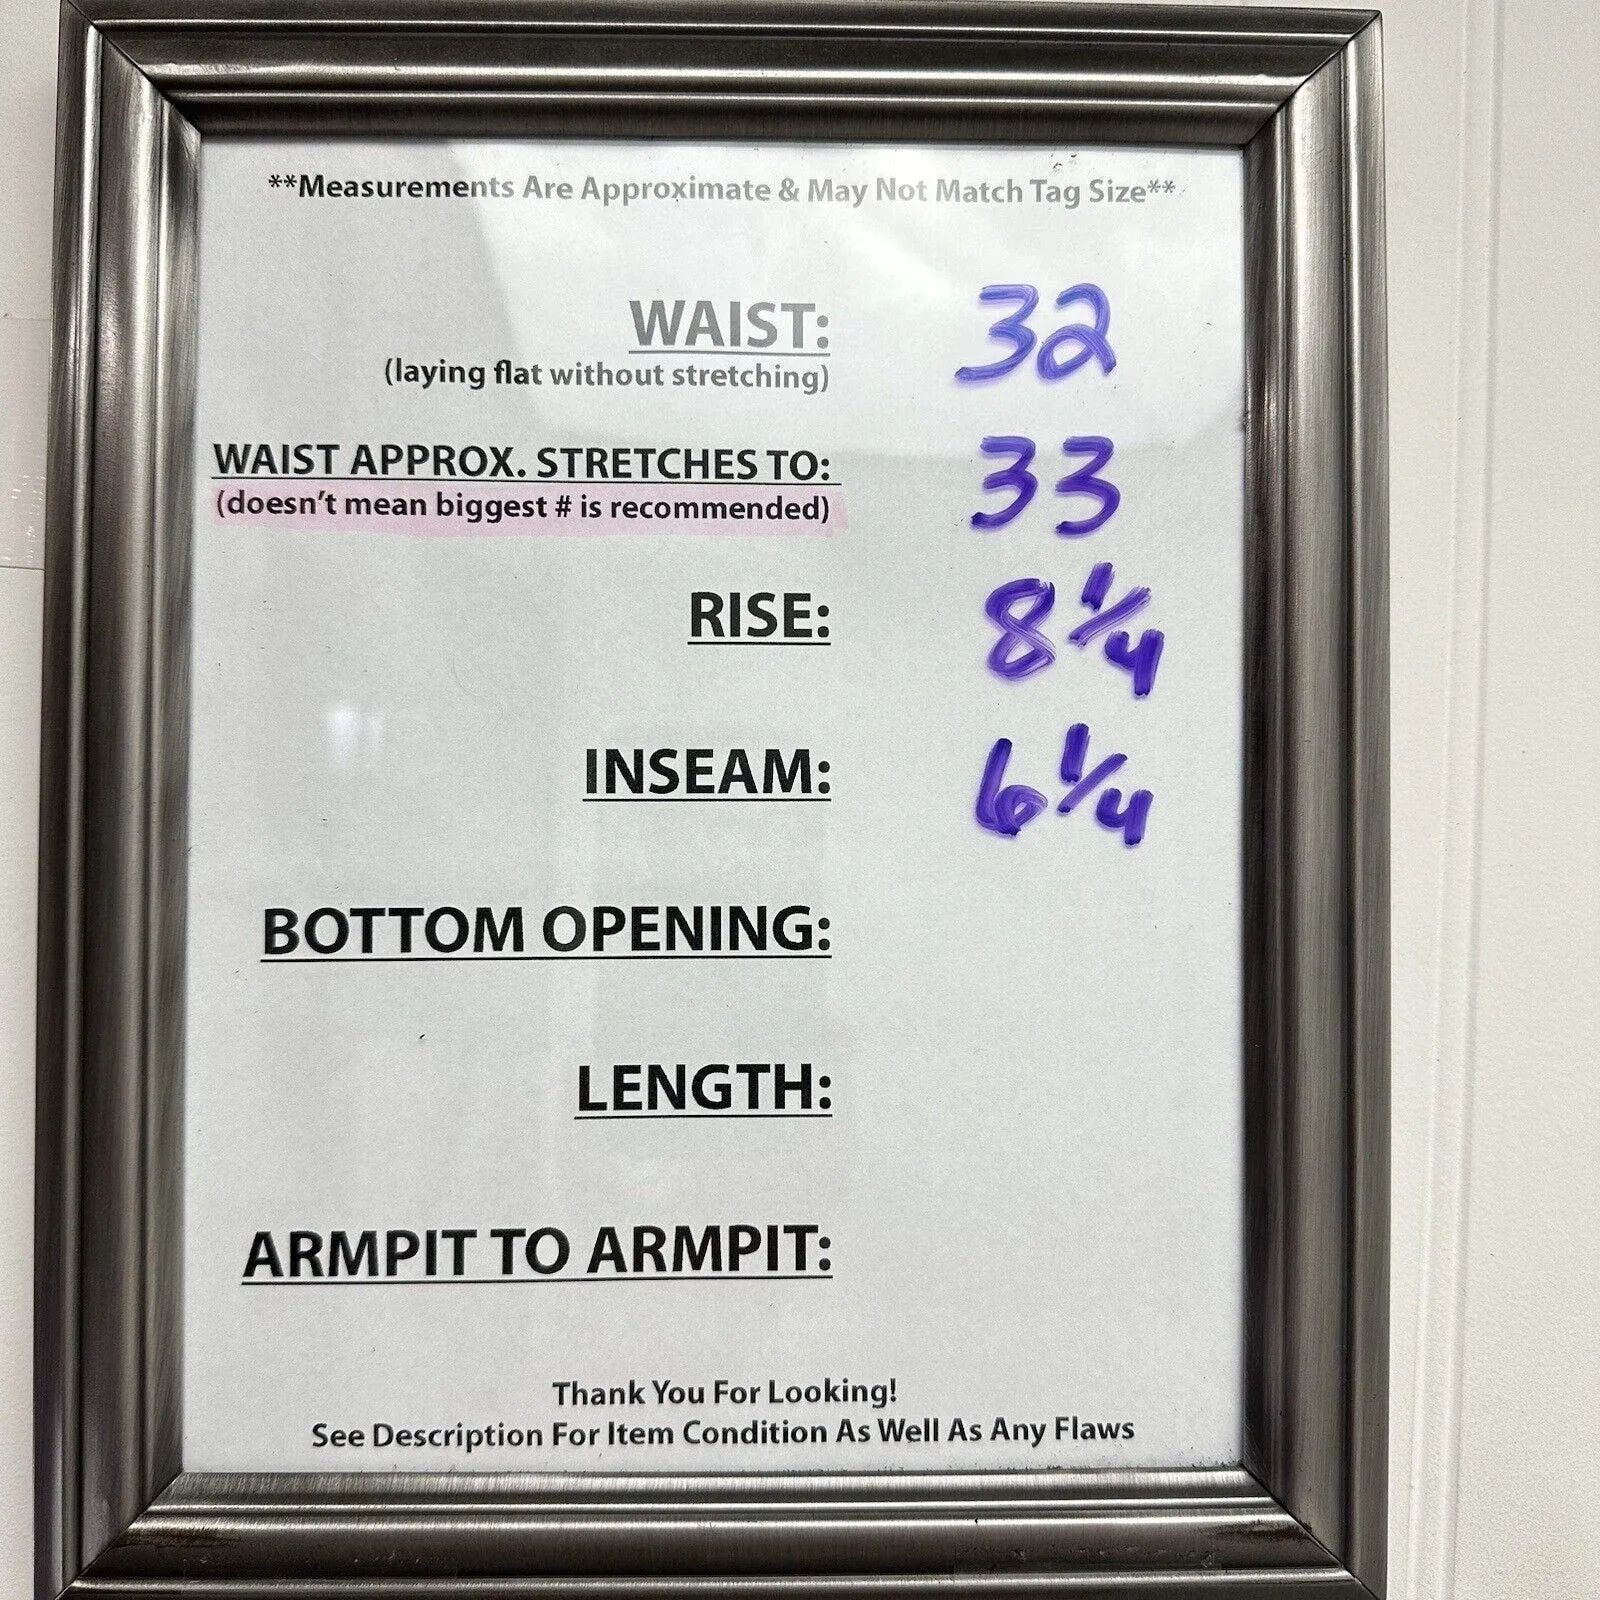 **Measurements Are Approximate & May Not Match Tag Size**
WAIST: 32
(laying flat without stretching)
WAIST APPROX. STRETCHES TO: 33
(doesn't mean biggest # is recommended)
RISE: 8 1/4
INSEAM: 6 1/4
BOTTOM OPENING:
LENGTH:
ARMPIT TO ARMPIT:
Thank You For Looking!
See Description For Item Condition As Well As Any Flaws